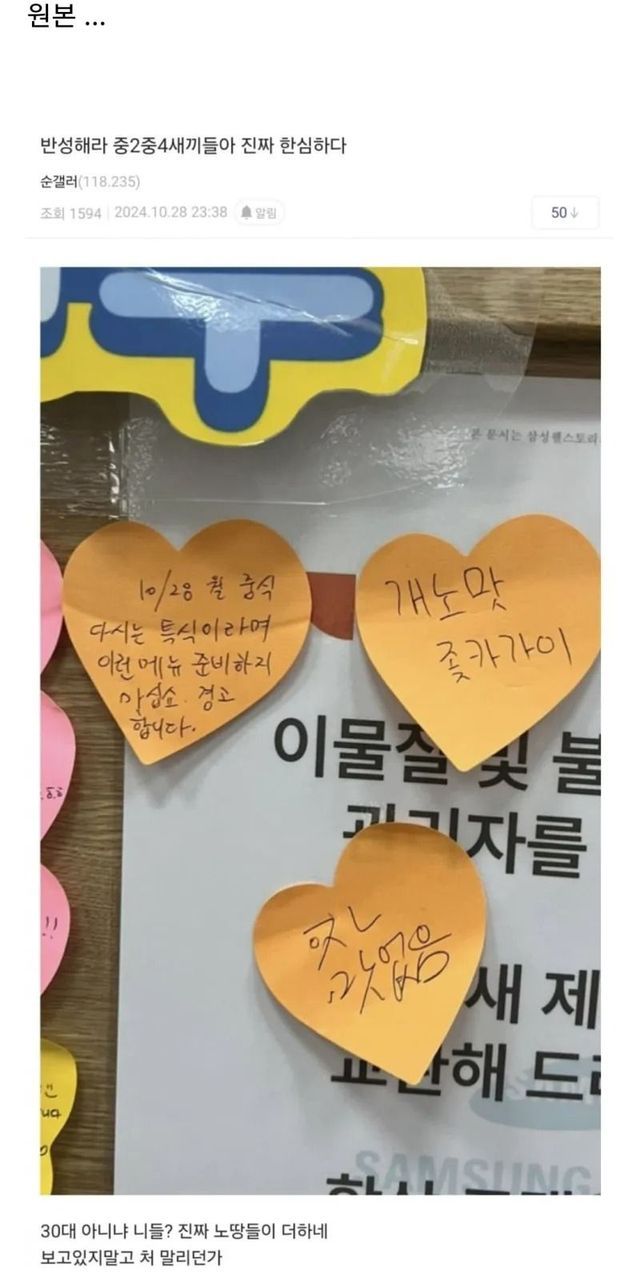 원본 ...
반성해라 중2중4새끼들아 진짜 한심하다
순갤러(118.235)
조회 1594 2024.10.28 23:38 알림
50↓
본 문서는 삼성웰스토리
10/28 월 중식
다시는 특식이라며
이런 메뉴 준비하지
마십쇼. 경고
합니다.
개노맛
좆카가이
이물질 및 불
관리자를
맛없음
새 제
교환해 드리
SAMSUNG
!!
30대 아니냐 니들? 진짜 노땅들이 더하네
보고있지말고 처 말리던가